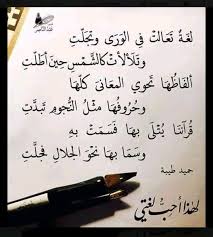 لغةٌ تعالتْ في الوَرَى وتجلّتِ
وتلألأتْ كالشّمسِ حينَ أطلّتِ
ألفاظُها تحوي المعانيَ كلّها
وحروفُها مثلُ النّجومِ تبدّتِ
قُرآننا يُتْلَى بها فَسَمَتْ بِهِ
وسَما بها نحوَ الجلالِ فجلّتِ
حميد طيبة
لهذا أحب لغتي